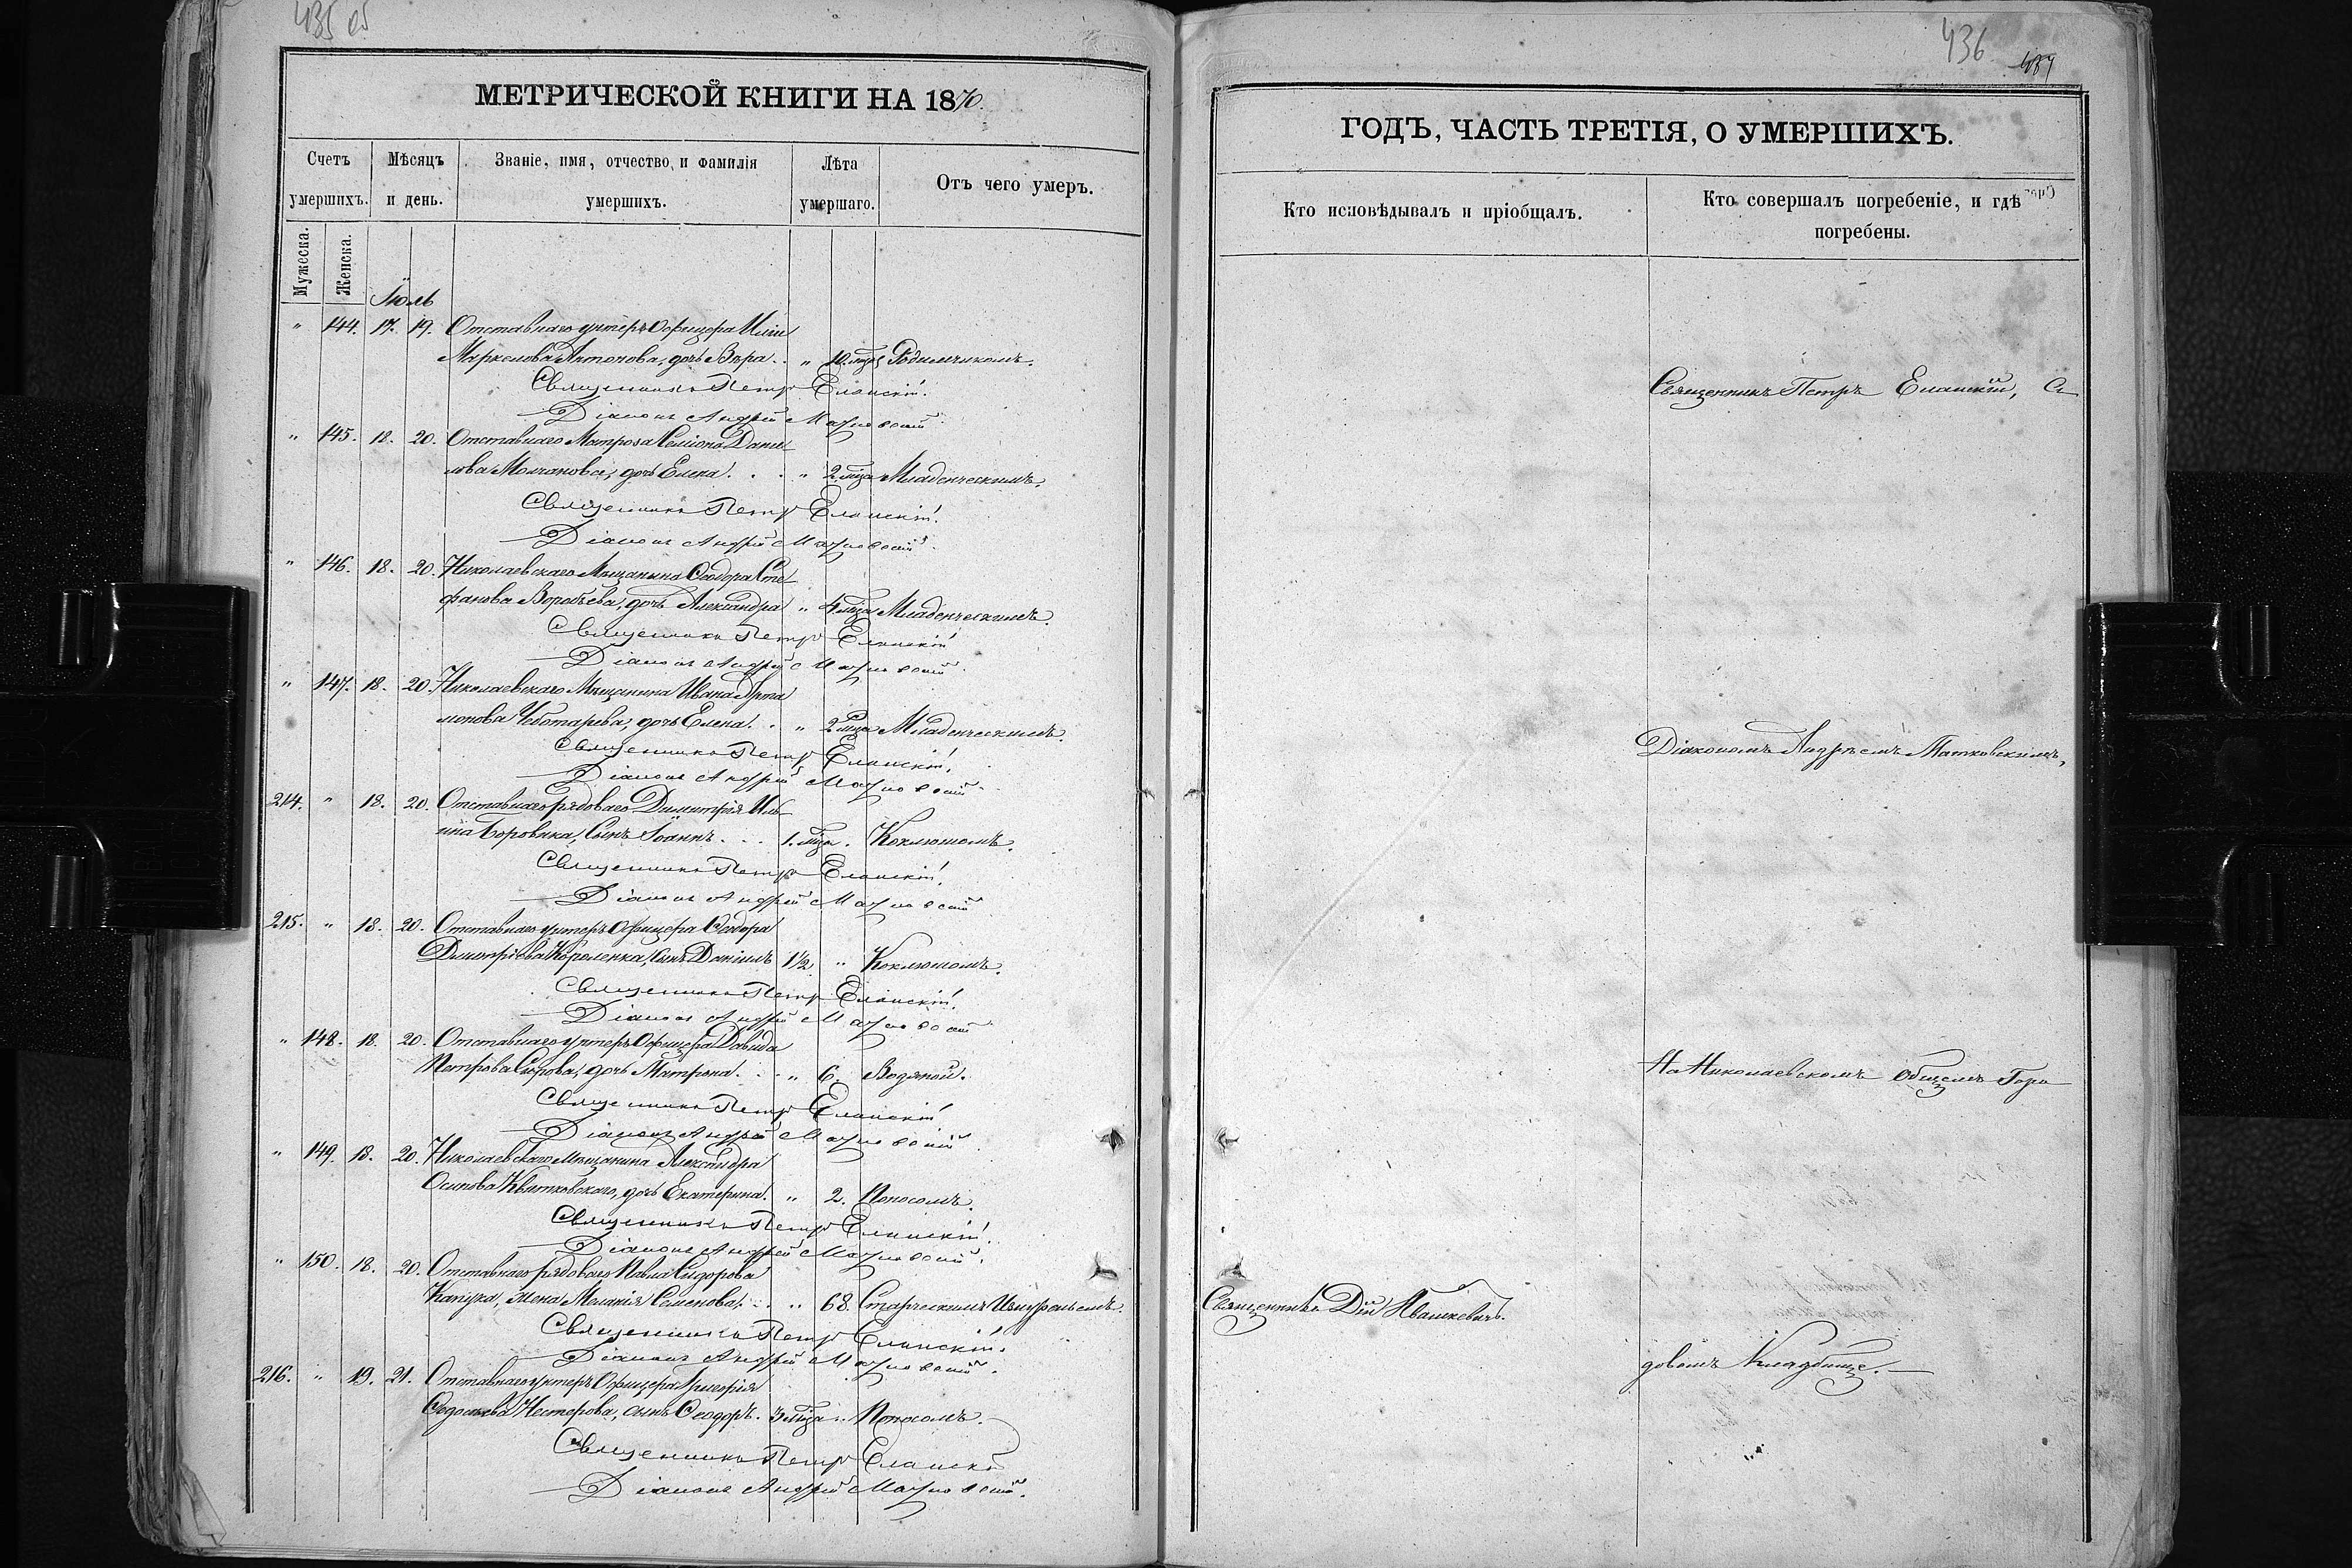 435 об
МЕТРИЧЕСКОЙ КНИГИ НА 1870.
Счетъ умершихъ.
Мѣсяцъ и день.
Званіе, имя, отчество, и фамилія умершихъ.
Лѣта умершаго.
Отъ чего умеръ.
Мужеска.
Женска.
Іюль
" 144. 17. 19. Отставнаго унтеръ Офицера Иліи
Маркелова Антонова, дочь Вѣра . . " 10. мѣс. Родимчикомъ.
Священникъ Петръ Еланскій.
Діаконъ Андрей Матковскій
" 145. 18. 20. Отставнаго Матроза Симеона Дани
лова Молчанова, дочь Елена . . . " 2. мѣс. Младенческимъ.
Священникъ Петръ Еланскій.
Діаконъ Андрей Матковскій.
" 146. 18. 20. Николаевскаго Мѣщанина Ѳеодора Сте
фанова Воробьева, дочь Александра " 4 мѣс. Младенческимъ.
Священникъ Петръ Еланскій
Діаконъ Андрей Матковскій.
" 147. 18. 20. Николаевскаго Мѣщанина Ивана Арта
монова Чеботарева, дочь Елена . . " 2 мѣс. Младенческимъ.
Священникъ Петръ Еланскій.
Діаконъ Андрей Матковскій
214. " 18. 20. Отставнаго рядоваго Димитрія Иль
ина Боровика, Сынъ Іоаннъ . . . 1. мѣс. . Коклюшомъ.
Священникъ Петръ Еланскій.
Діаконъ Андрей Матковскій
215. " 18. 20. Отставнаго унтеръ Офицера Ѳеодора
Димитріева Короленка, сынъ Даніилъ 1½ " Коклюшомъ.
Священникъ Петръ Еланскій.
Діаконъ Андрей Матковскій
" 148. 18. 20. Отставнаго унтеръ Офицера Давида
Петрова Сирова, дочь Матрона . . . " 6. Водяной.
Священникъ Петръ Еланскій
Діаконъ Андрей Матковскій
" 149. 18. 20. Николаевскаго Мѣщанина Александра
Осипова Квитковскаго, дочь Екатерина. " 2. Поносомъ.
Священникъ Петръ Еланскій.
Діаконъ Андрей Матковскій.
" 150. 18. 20. Отставнаго рядоваго Павла Сидорова
жена Меланія Семенова. . . " 68. Старческимъ Изнуреніемъ.
Священникъ Петръ Еланскій.
Діаконъ Андрей Матковскій.
216. " 19. 21. Отставнаго унтеръ Офицера Григорія
Нестерова, сынъ Ѳеодоръ. 3 мѣс. " Поносомъ.
Священникъ Петръ Еланскій
Діаконъ Андрей Матковскій.
436
ГОДЪ, ЧАСТЬ ТРЕТІЯ, О УМЕРШИХЪ.
Кто исповѣдывалъ и пріобщалъ.
Кто совершалъ погребеніе, и гдѣ
погребены.
Священникъ Петръ Еланскій, Съ
Діакономъ Андреемъ Матковскимъ,
На Николаевскомъ Общемъ Горо
Священникъ Дій Ивашкевичъ.
довомъ Кладбище.